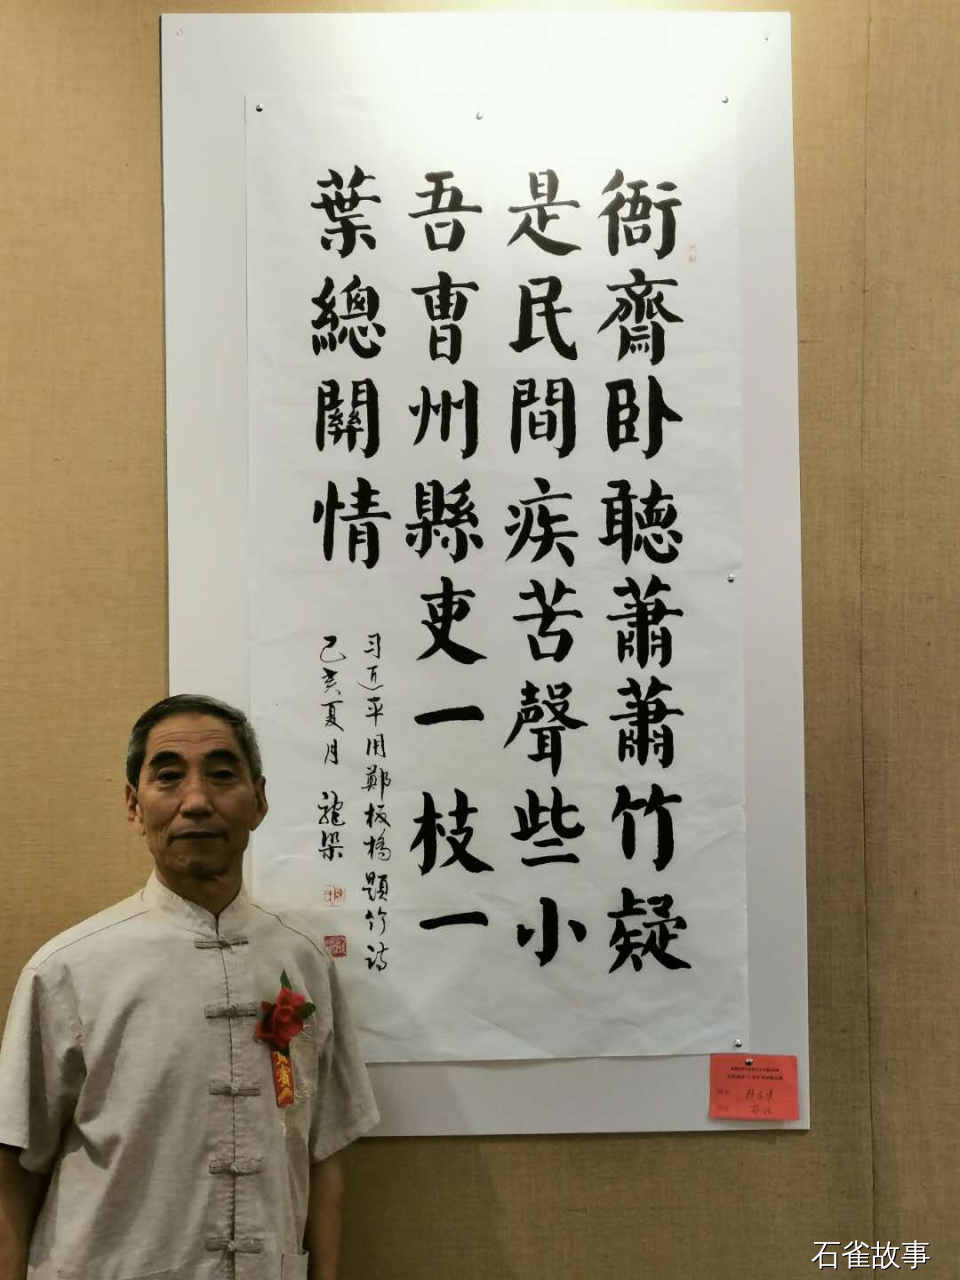 衙齋卧聽蕭蕭竹疑
是民間疾苦聲些小
吾曹州縣吏一枝一
葉總關情
习近平用鄭板橋題竹诗
己亥夏月 龍梁
石雀故事